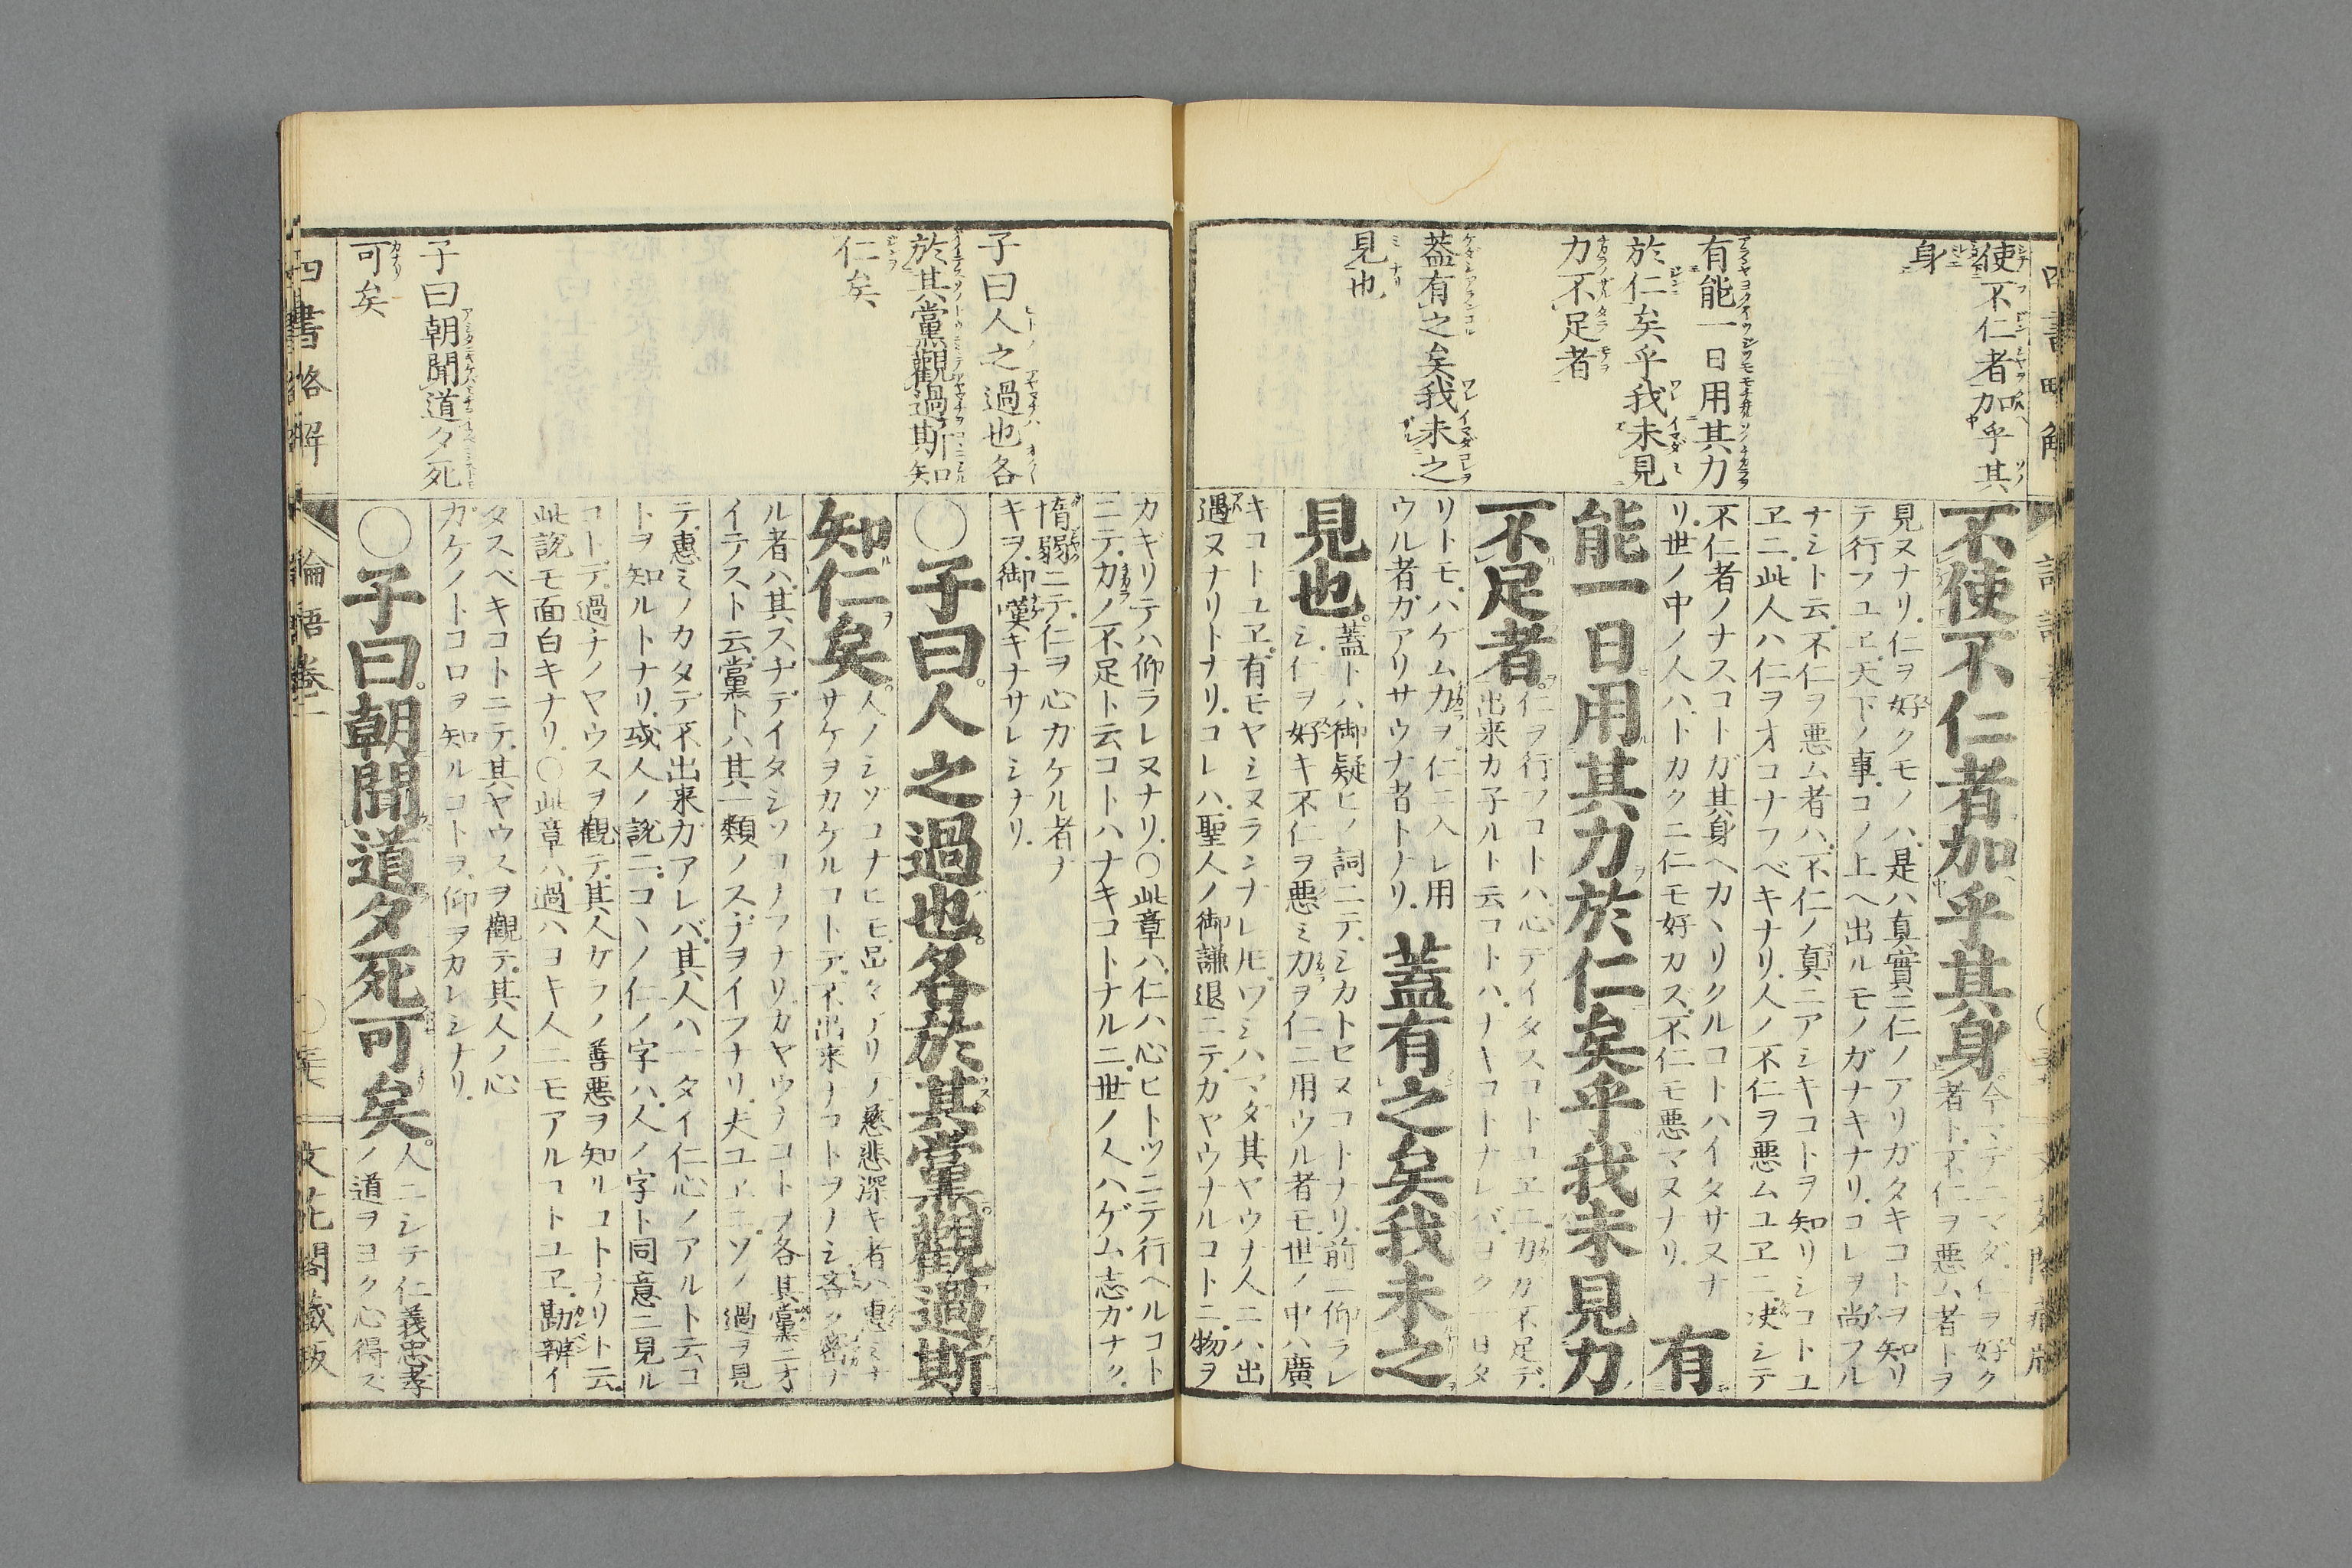 使不仁者加乎其
身
有能一日用其力
於仁矣乎我未見
力不足者
蓋有之矣我未之
見也
不使不仁者加乎其身
者ト不仁ヲ悪ム者トヲ
見ヌナリ仁ヲ好クモノハ是ハ真實ニ仁ノアリガタキコトヲ知リ
テ行フユヱ天下ノ事コノ上ヘ出ルモノガナキナリコレヲ尚フル
ナシト云不仁ヲ悪ム者ハ不仁ノ真ニアシキコトヲ知リシコトユ
ヱニ此人ハ仁ヲオコナフベキナリ人ノ不仁ヲ悪ムユヱニ决シテ
不仁者ノナスコトガ其身ヘカヽリクルコトハイタサヌナ
リ世ノ中ノ人ハトカクニ仁モ好カズ不仁モ悪マヌナリ
有
能一日用其力於仁矣乎我未見力
不足者
仁ヲ行フコトハ心デイタスコトユヱニ力ガ不足デ
出来カ子ルト云コトハナキコトナレバヨク 日タ
リトモハゲム力ヲ仁ニ入レ用
ウル者ガアリサウナ者トナリ
蓋有之矣我未之
見也
蓋トハ御疑ヒノ詞ニテシカトセヌコトナリ前ニ仰ラレ
シ仁ヲ好キ不仁ヲ悪ミ力ヲ仁ニ用ウル者モ世ノ中ハ廣
キコトユヱ有モヤシヌラシナレ𪜈ワシハマダ其ヤウナ人ニハ出
遇ヌナリトナリコレハ聖人ノ御謙退ニテカヤウナルコトニ物ヲ
子曰人之過也各
於其黨觀過斯知
仁矣
子曰朝聞道夕死
可矣
カギリテハ仰ラレヌナリ〇此章ハ仁ハ心ヒトツニテ行ヘルコト
ニテ力ノ不足ト云コトハナキコトナルニ世ノ人ハゲム志ガナク
惰弱ニテ仁ヲ心ガケル者ナ
キヲ御嘆キナサレシナリ
〇子曰人之過也各於其黨觀過斯
知仁矣
人ノシゾコナヒモ品々アリノ慈悲深キ者ハ惠ミナ
サケヲカケルコトデ不出来ナコトヲシ吝
ル者ハ其スヂデイタシソコナフナリカヤウノコトヲ各其黨ニオ
イテスト云黨トハ其一類ノスヂヲイフナリ夫ユヱニソノ過ヲ見
テ惠ミノカタデ不出来ガアレバ其人ハ一タイ仁心ノアルト云コ
トヲ知ルトナリ或人ノ説ニコヽノ仁ノ字ハ人ノ字ト同意ニ見ル
コトデ過チノヤウスヲ觀テ其人ケラノ善悪ヲ知ルコトナリト云
此説モ面白キナリ〇此章ハ過ハヨキ人ニモアルコトユヱ勘辨イ
タスベキコトニテ其ヤウスヲ觀テ其人ノ心
ガケノトコロヲ知ルコトヲ仰ヲカレシナリ
〇子曰朝聞道夕死可矣
人ニシテ仁義忠孝
ノ道ヲヨク心得ズ
四書略解
論語巻二
文花閣蔵板